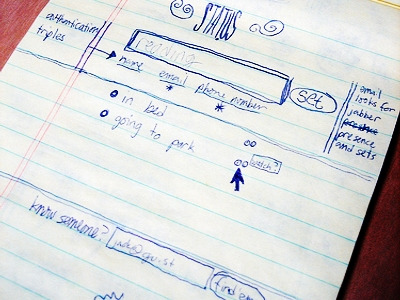 STATUS
authentication
triples
reading
name email phone number
* *
set
email
looks for
jabber
presence
and sets
in bed
going to park
watch?
know someone?
find'em